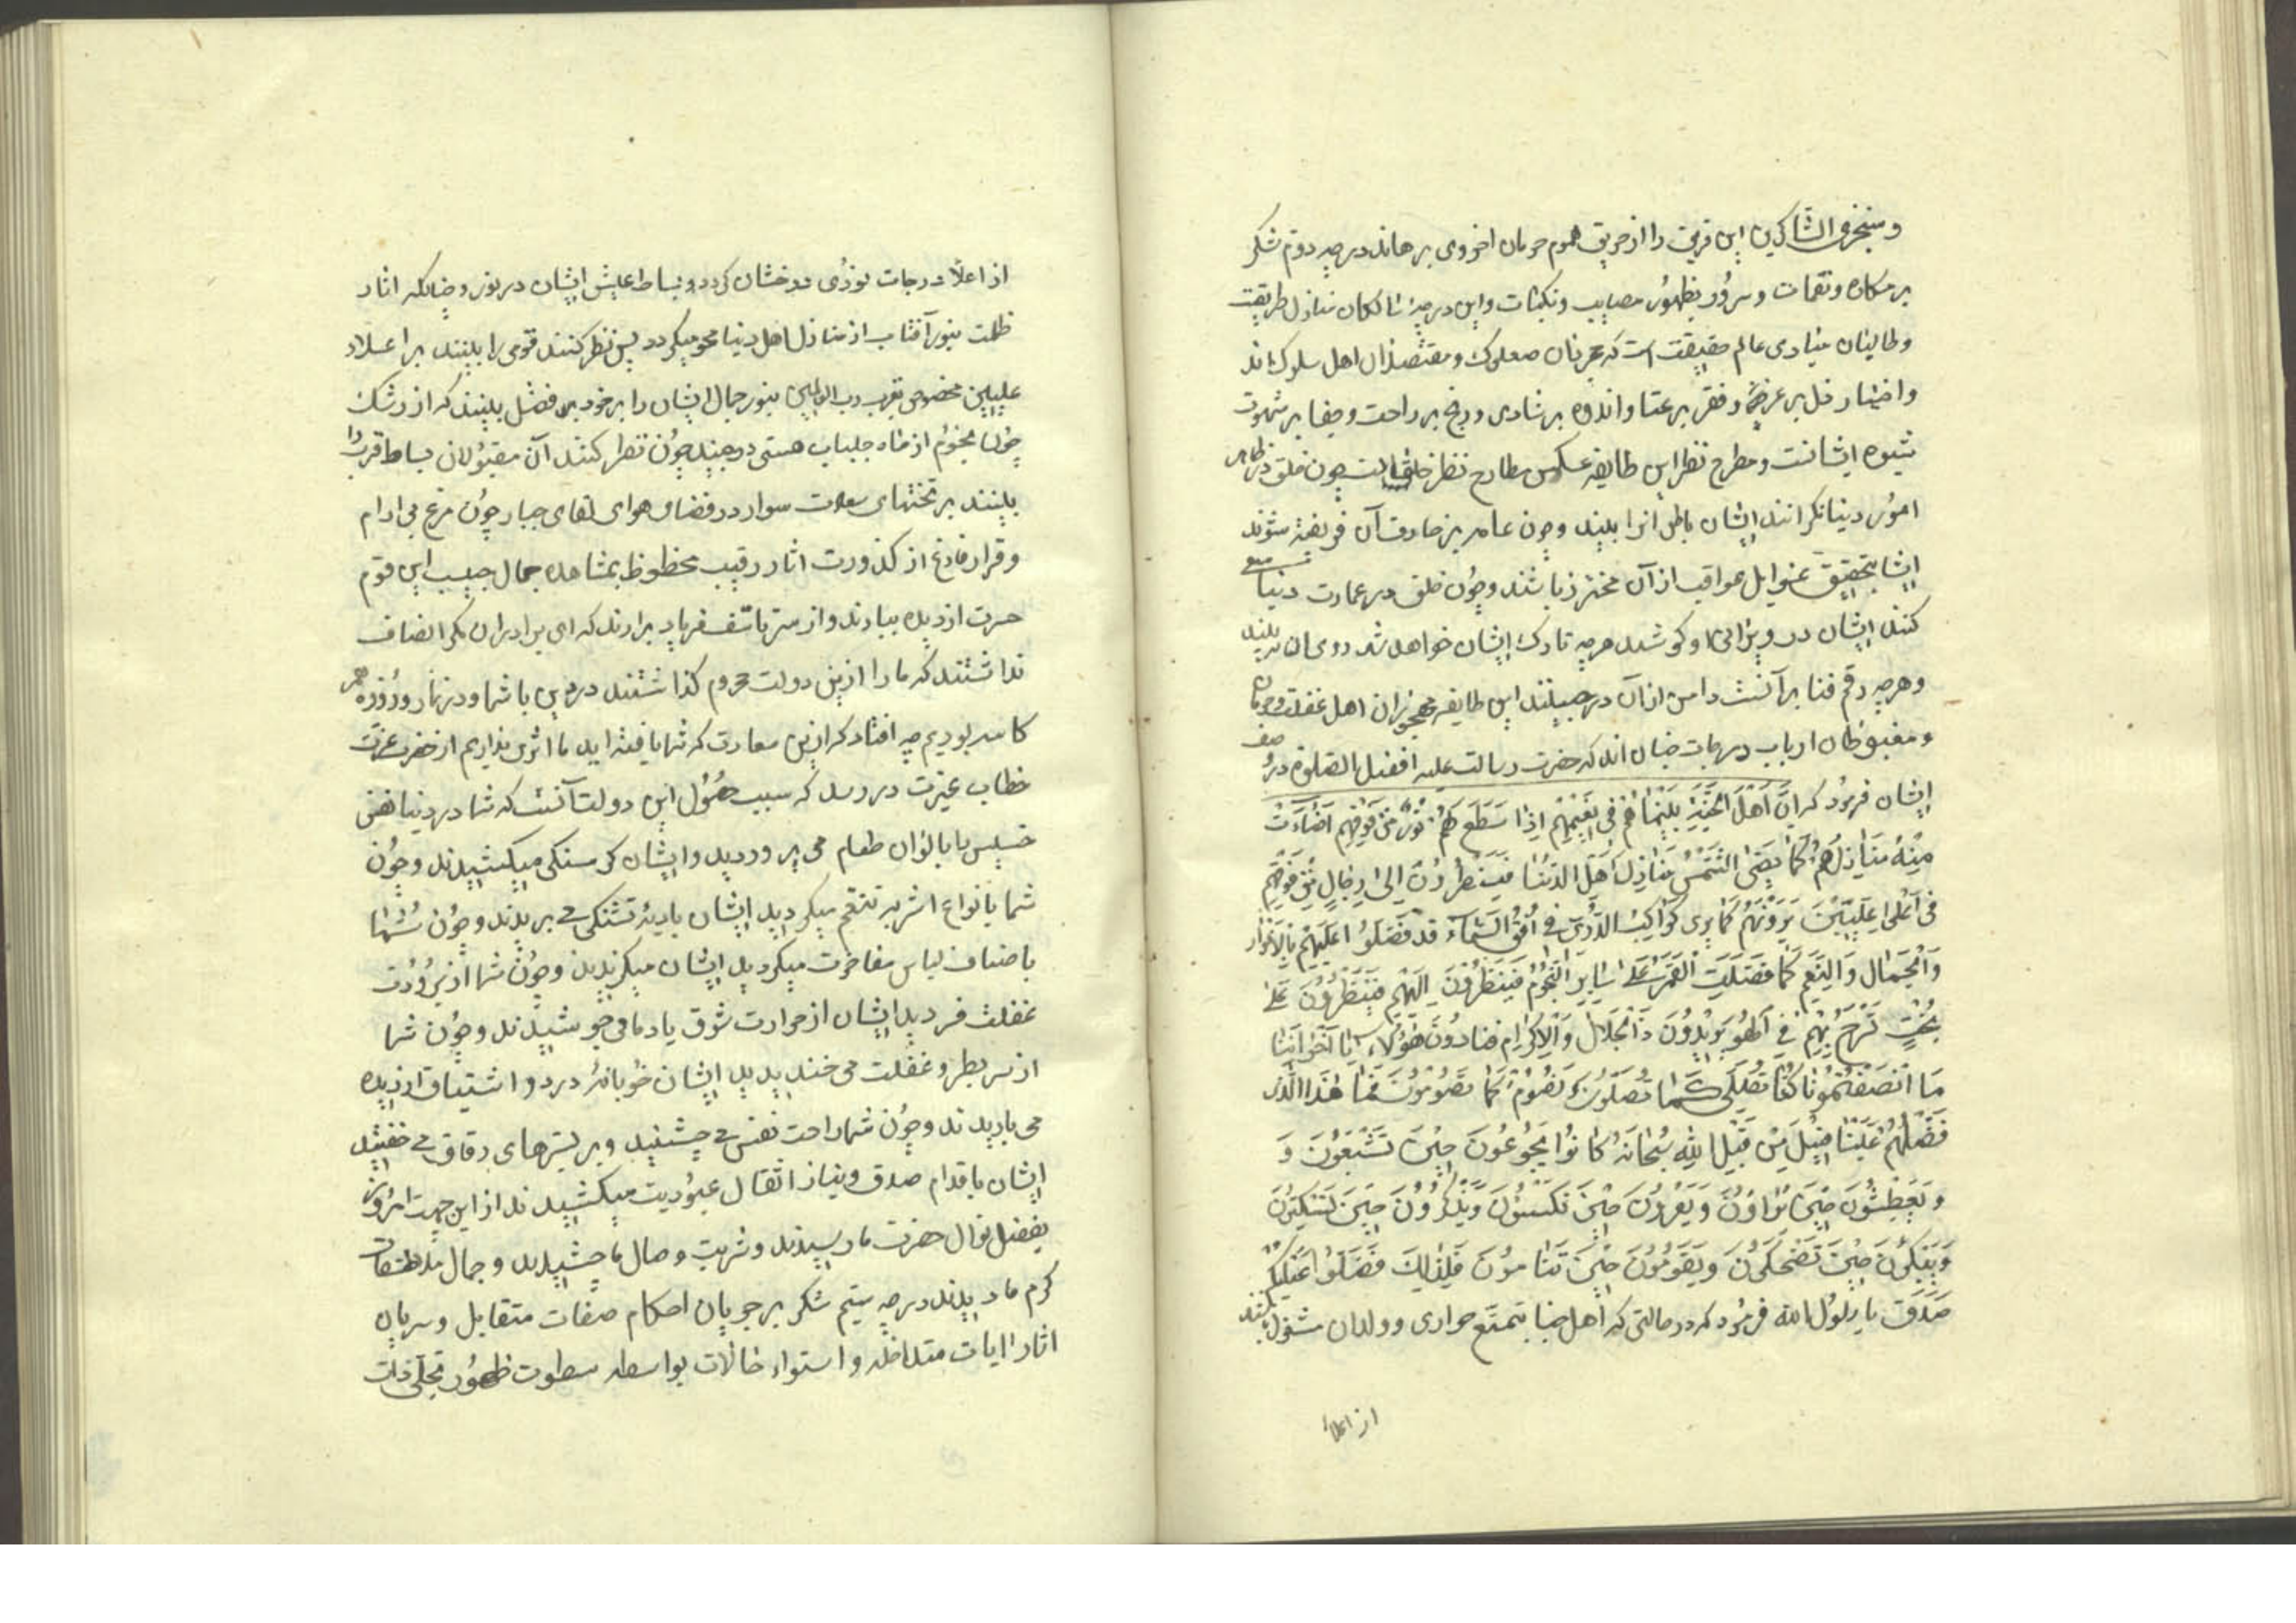 وسنجزی الشاکرین این فریق را از حریق هموم حرمان اخروی برهاند درجه دوم شکر
بر مکاره ونقمات وسرور بظهور مصایب ونکبات واین درجه سالکان منازل طریقت
وطالبان مبادی عالم حقیقت است که عزیزان صعلوک ومقتصدان اهل سلوک اند
واختیار ذل بر عز و فقر بر غنا واندوه بر شادی ورنج بر راحت وجفا بر شهوت
شیوه ایشانست ومطرح نظر این طایفه عکس مطارح نظر خلق است چون خلق در ظاهر
امور دنیا نکرانند ایشان باطن انرا بینند وچون عامه بزخارف آن فریفته شوند
ایشان بتحقیق غوایل عواقب از آن محترز باشند وچون خلق در عمارت دنیا سعی
کنند ایشان در ویرانی او کوشند هرچه تارک ایشان خواهد شد روی از آن
وهرچه رقم فنا بر آنست دامن از آن درچینند این طایفه محجوبان اهل غفلت
ومغبوطان ارباب درجات جنان اند که حضرت رسالت علیه افضل الصلوة در صفت
ایشان فرمود که ان اَهْلَ الجَنَّةِ بَیْنَمٰا هُمْ فی نَعیْمِهِمْ اِذا سَطَعَ لَهُمْ نُورٌ مِن فَوقِهِم اَضٰاءَتْ
مِنْهُ مَنَازِلُهُمْ کَمٰا تُضِئُ الشَّمْسُ مَنَازِلَ اَهْلِ الدُّنْیٰا فَیَنْظُرُوْنَ اِلیٰ رِجٰالٍ مِنْ فَوْقِهِمْ
فی اَعْلیٰ عِلِّیِّیْنَ یَرَوْنَهُمْ کَمٰا یُرٰی کَوٰاکِبُ الدُّرِّیّ فِی اُفُقِ السَّمٰاءِ قد فُضِّلُوا عَلَیْهِمْ بِالاَنْوار
وَالْجَمٰالِ وَالنِّعَمِ کَمٰا فُضِّلَتِ القَمَرُ عَلیٰ سٰایِرِ النُّجُوْمِ فَیَنْظُرُوْنَ اِلَیْهِمْ فَیَنْظُرُوْنَ عَلیٰ
نُجُبٍ تَسْرَحُ بِهِمْ فِی الْهَوٰاءِ یَزُوْرُوْنَ ذَا الْجَلالِ وَالاِکرٰامِ فَنادَوْنَ هٰؤُلاٰءِ یا اِخْوٰانَنٰا
مٰا اَنْصَفْتُمُوْنٰا کُنّٰا نُصَلِّی کَمٰا تُصَلُّوْنَ نَصُوْمُ کَمٰا تَصُوْمُوْنَ فَمٰا هٰذَا الَّذی
فَضَّلَهُمْ عَلَیْنٰا قیْلَ مِنْ قِبَلِ اللهِ سُبْحَانَهُ کَانُوا یَجُوْعُوْنَ حِیْنَ تَشْبَعُوْنَ وَ
وَ یَعْطِشُونَ حِیْنَ تَرْوَوُنَ وَیَعْرَوْنَ حِیْنَ تَکْسَوُنَ وَیَذْکُرُوْنَ حِیْنَ تَسْکُتُوْنَ
وَیَبْکُونَ حِیْنَ تَضْحَکُونَ وَیَقُوْمُوْنَ حِیْنَ تَنٰامُوْنَ فَلِذٰلِکَ فُضِّلُوْا عَلَیْکُم
صَدَقَ یا رسولُ الله فرمود که در حالتی که اهل جنان بتمتع حواری وولدان مشغول باشند
از اعلا
از اعلا درجات نوری درخشان کردد وبساط عیش ایشان در نور وضیا که اثار
ظلمت بنور آفتاب از منازل اهل دنیا محو میکردد پس نظر کنند قومی را بینند بر اعلا
علیین مخصوص بقرب رب العالمین بنور جمال ایشان را بر خود فضل بینند که از رشک
چون نجوم از ماه جلباب هستی چون نظر کنند آن مقبولان بساط قرب را
بینند بر تختهای سعادت سوار در فضای هوای لقای جبار چون مرغ بی ارام
وقرار فارغ از کدورت اثار رقیب محظوظ بمشاهده جمال حبیب این قوم
حسرت از دیده ببارند واز سر تاسف فریاد برارند که ای برادران مکر انصاف
نداشتند که ما را ازین دولت محروم کذاشتند در دین با شما ودر نماز وروزه هم
کاسه بودیم چه افتاد که ازین سعادت که شما یافته اید ما اثری نداریم از حضرت عزت
خطاب عزت در رسد که سبب حصول این دولت آنست که شما در دنیا نفس
خسیس با بالوان طعام می پروردید وایشان کرسنکی میکشیدند وچون
شما بانواع اشربه تنعم میکردید ایشان بادیه تشنکی می بریدند وچون شما
باصناف لباس مفاخرت میکردید ایشان میکزیدند وچون شما از برودت
غفلت فسردید ایشان از حرارت شوق یاد ما می جوشیدند وچون شما
از سر بطر وغفلت می خندیدید ایشان خوبابه درد واشتیاق از دیده
می باریدند وچون شما راحت نفس می چشیدید وبر بسترهای دقاق می خفتید
ایشان باقدام صدق ونیاز اثقال عبودیت میکشیدند از این جهت امروز
بفضل نوال حضرت ما رسیدند وشربت وصال ما چشیدند وجمال
کرم ما دیدند درجه سیم شکر بر جریان احکام صفات متقابل وسریان
اثار ایات متداخله واستواء حالات بواسطه سطوت ظهور تجلی ذات